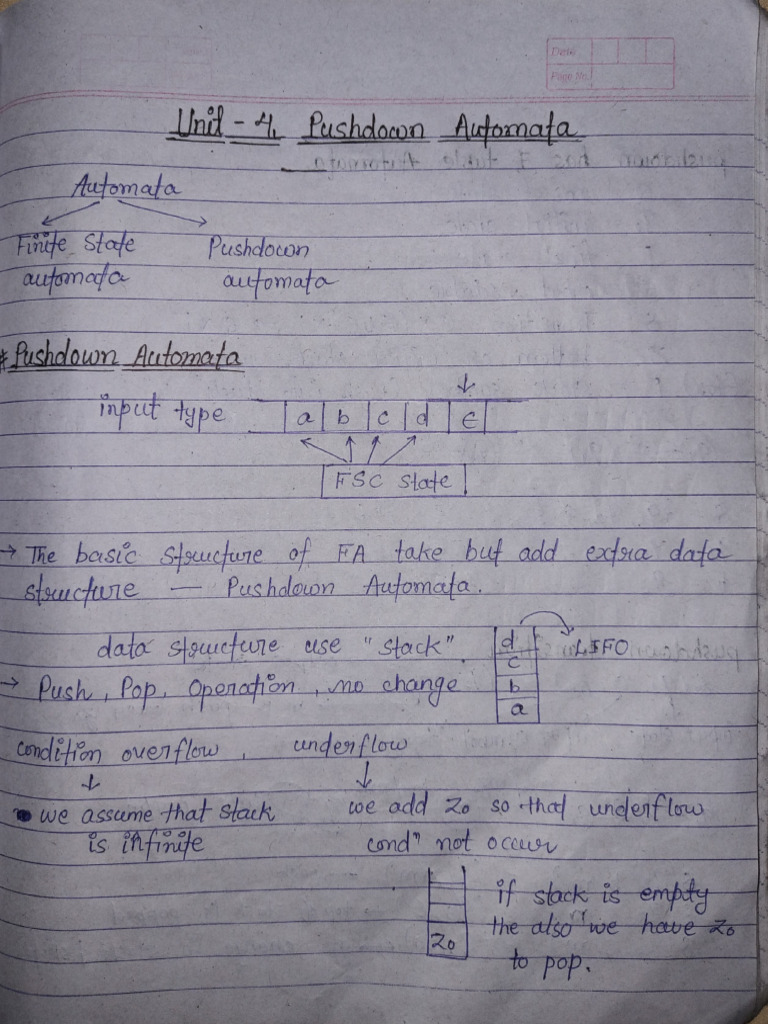 Date
Page No.
Unit - 4. Pushdown Automata
Automata
Finite State Pushdown
automata automata
* Pushdown Automata
input type a b c d ϵ
FSC State
→ The basic structure of FA take but add extra data
structure — Pushdown Automata.
data structure use "stack". d LIFO
c
→ Push, Pop, Operation, no change b
a
condition overflow, underflow
we assume that stack we add Z₀ so that underflow
is infinite condⁿ not occur
if stack is empty
the also we have Z₀
Z₀
to pop.